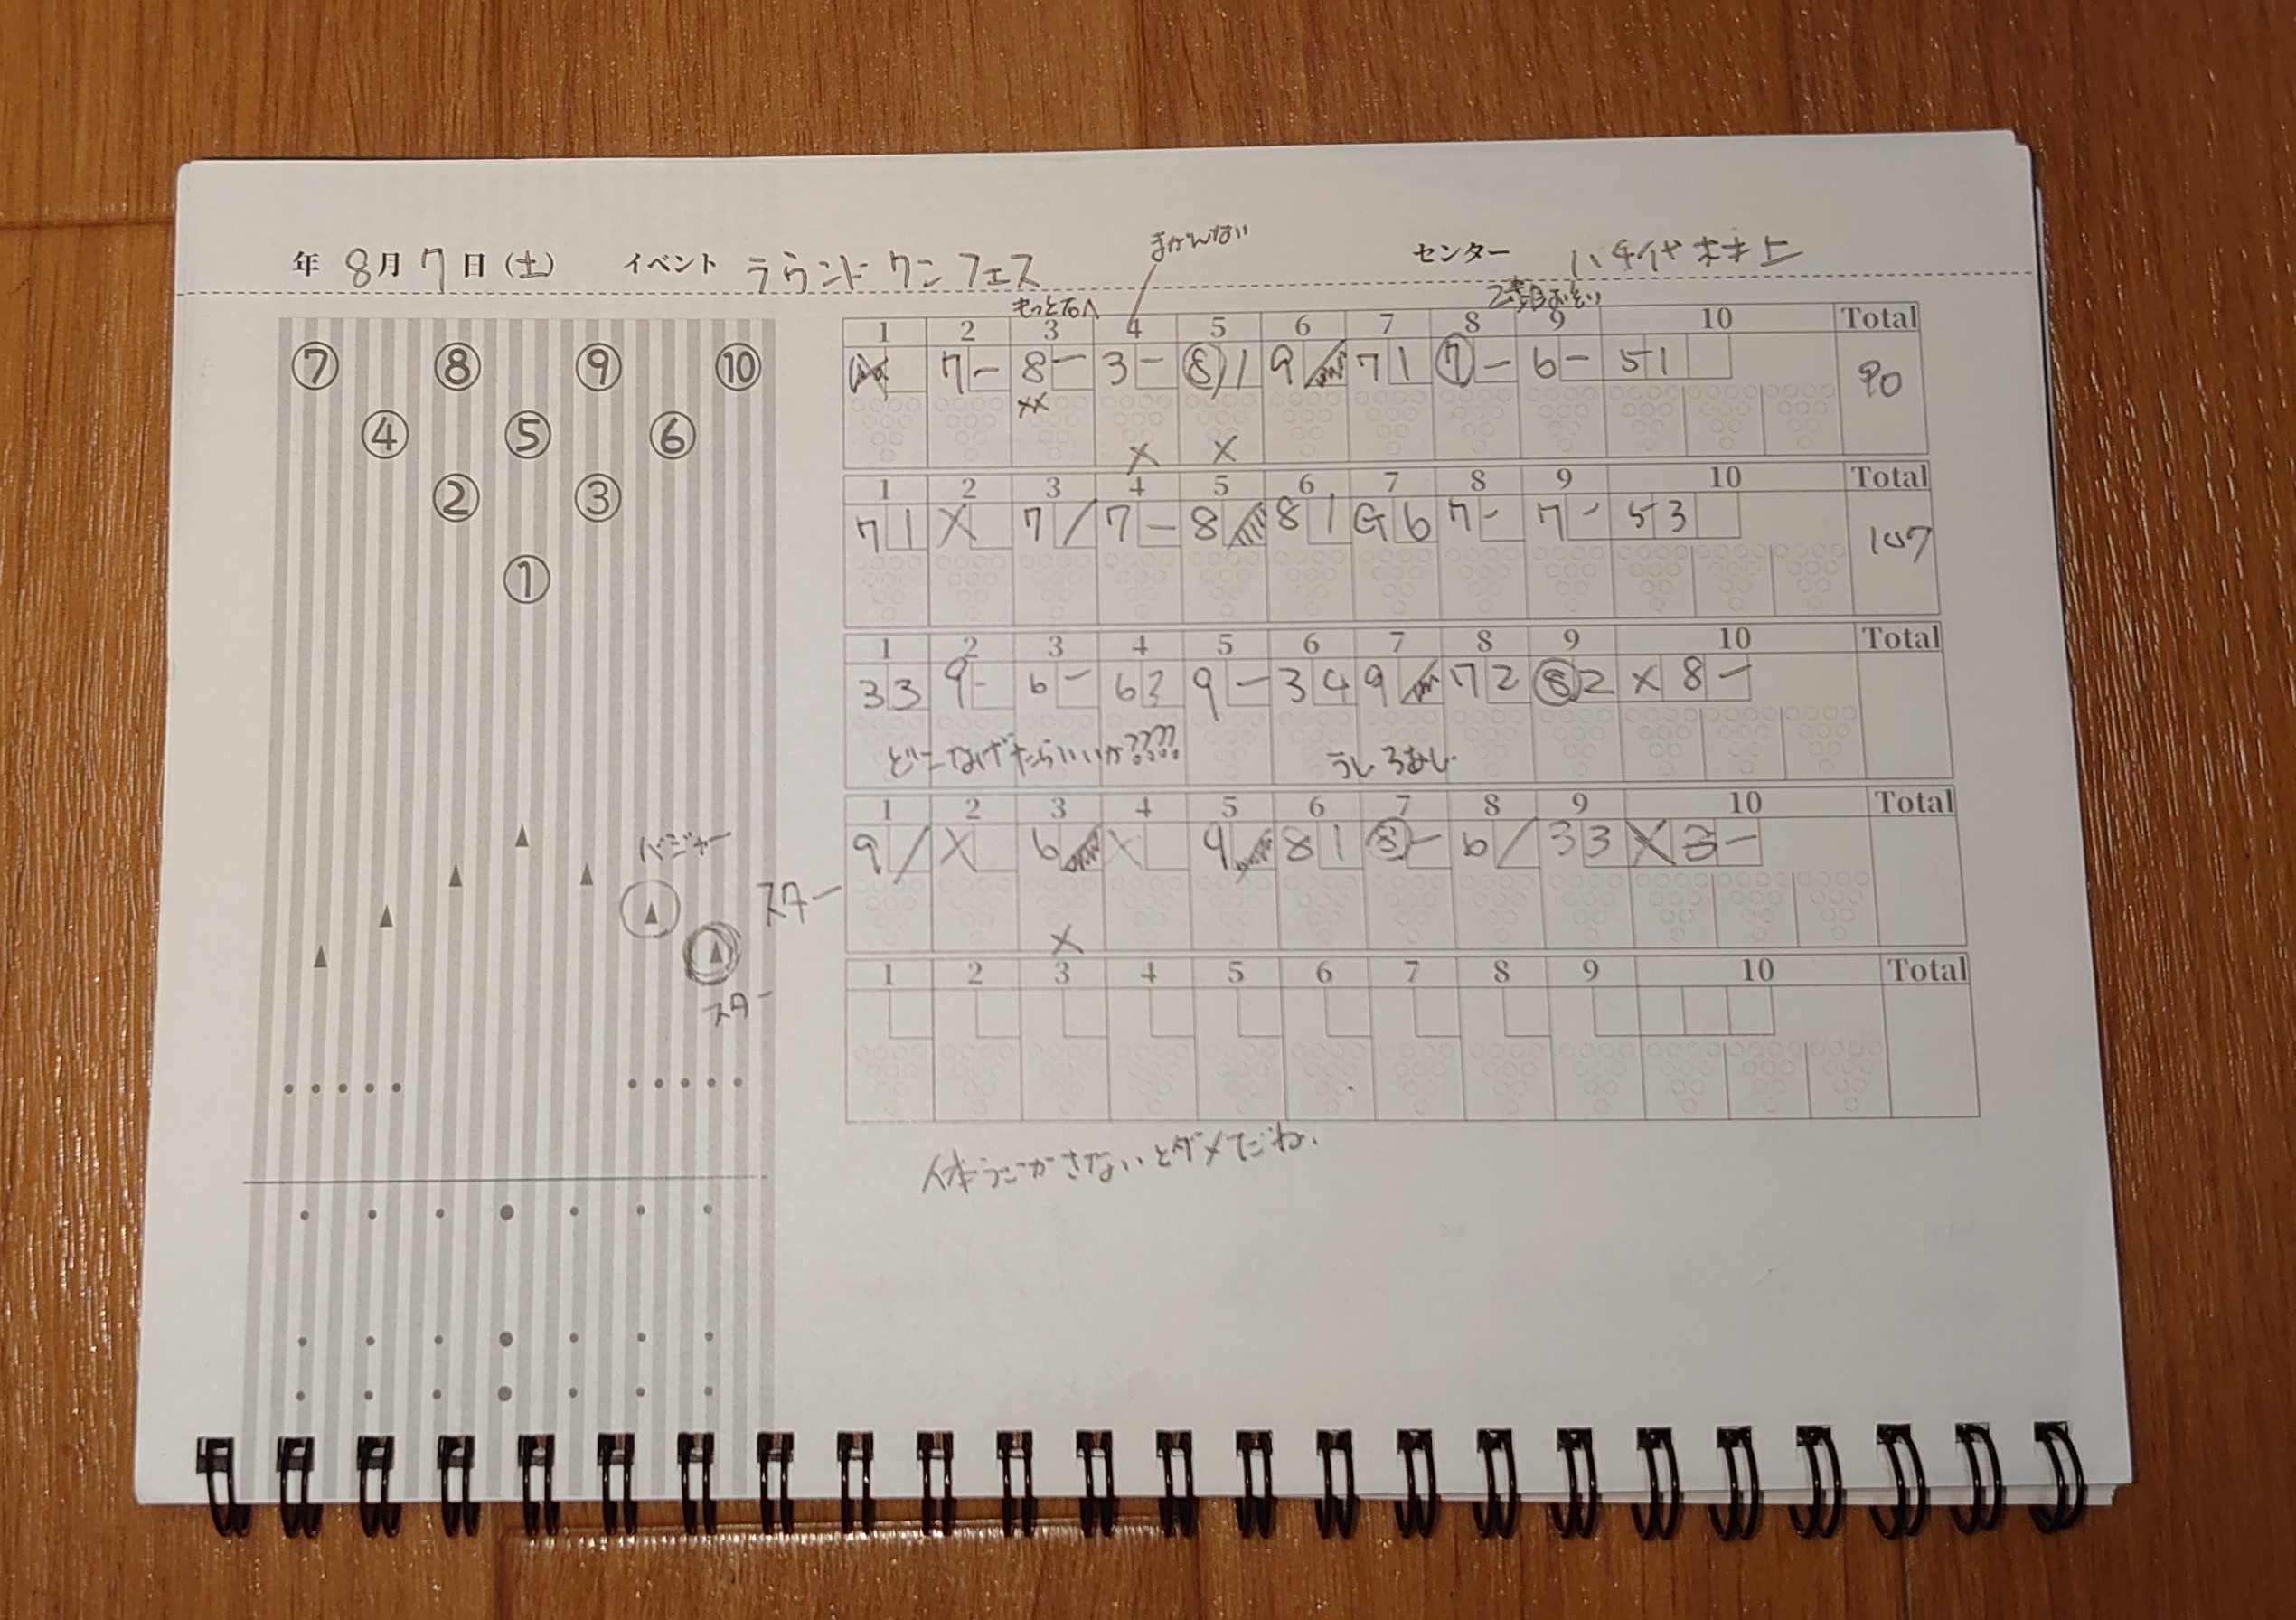 年 8月 7日(土) イベント ラウンドワンフェス センター 八千代村上
まがんない
もっと右へ 2番目おそい
1 2 3 4 5 6 7 8 9 10 Total
7 - 8 - 3 - ⑧ 1 9 7 1 ⑦ - 6 - 5 1 90
XX
X X
1 2 3 4 5 6 7 8 9 10 Total
7 1 X 7 / 7 - 8 8 1 G 6 7 - 7 - 5 3 107
1 2 3 4 5 6 7 8 9 10 Total
3 3 9 - 6 - 6 9 - 3 4 9 7 2 ⑧ 2 X 8 -
どこなげたらいいか????
うしろあし
1 2 3 4 5 6 7 8 9 10 Total
9 / X 6 X 9 8 1 ⑧ - 6 / 3 3 X 8 -
スター
X
1 2 3 4 5 6 7 8 9 10 Total
体うごかさないとダメだね.
⑦ ⑧ ⑨ ⑩
④ ⑤ ⑥
② ③
①
バジャー
スター